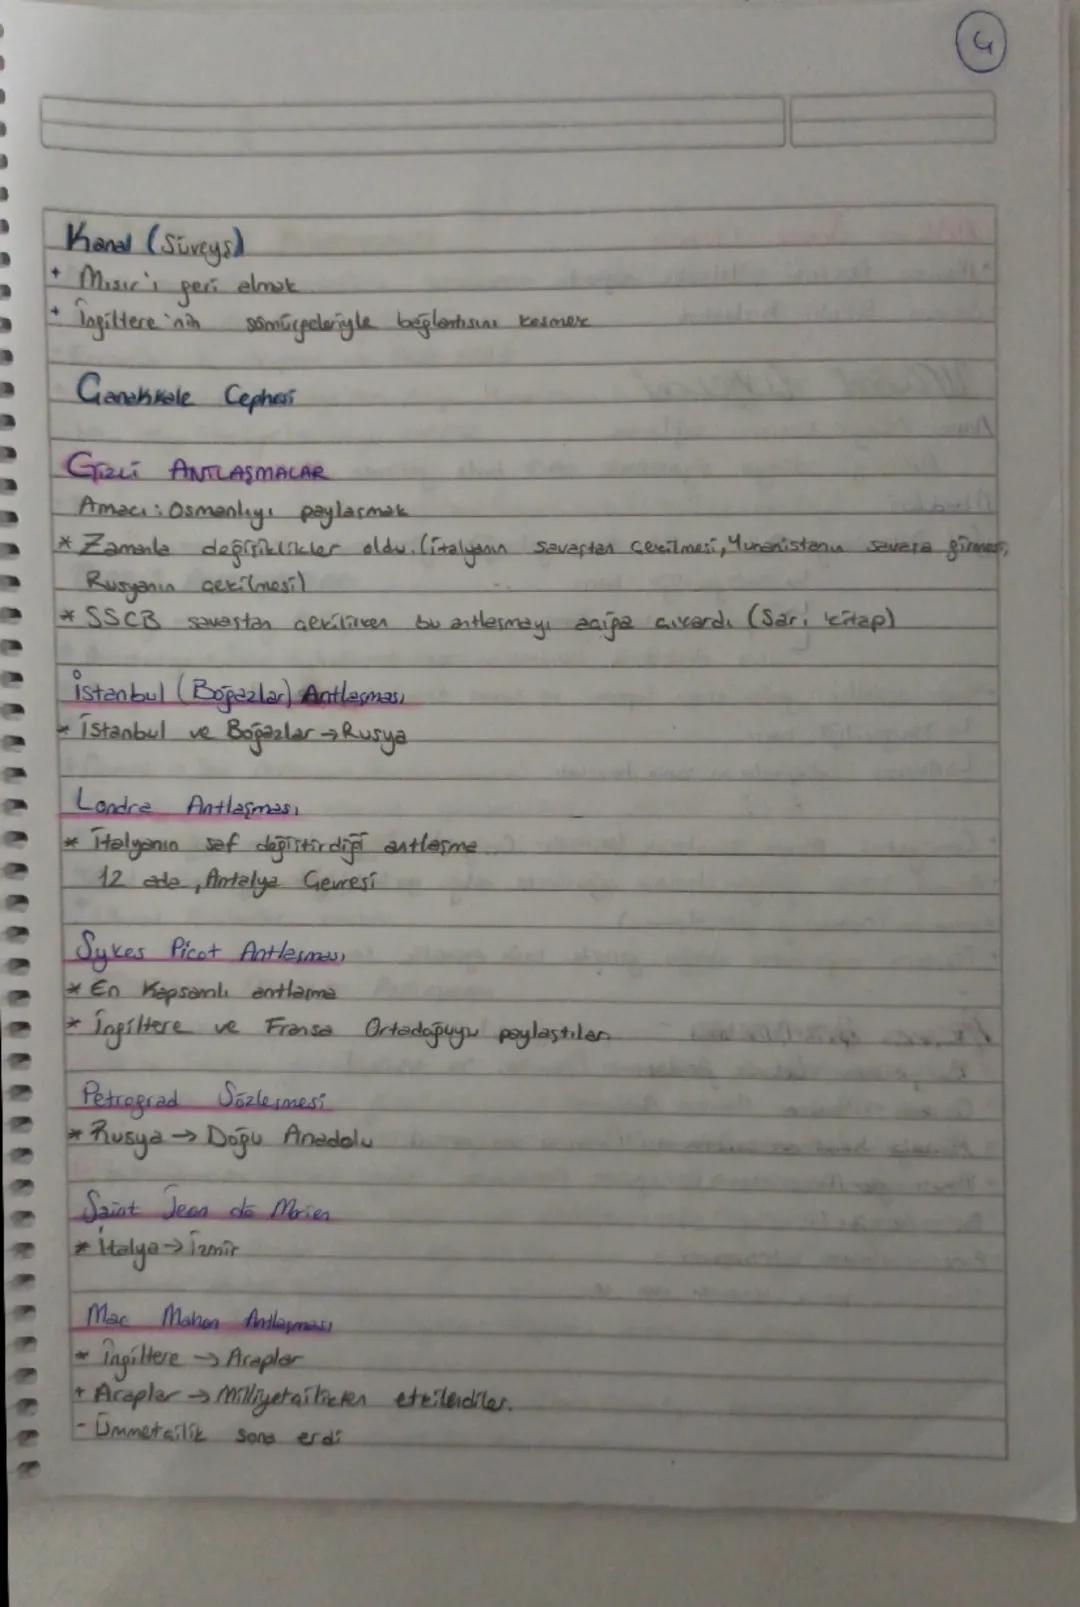 4
Kanal (Süveyş)
+ Mısır'ı geri almak
+ İngiltere'nin sömürgeleriyle bağlantısını kesmek
Çanakkale Cephesi
GİZLİ ANTLAŞMALAR
Amacı: Osmanlıyı paylaşmak
* Zamanla değişiklikler oldu. (italyanın savaştan çekilmesi, Yunanistanın savaşa girmesi,
Rusyanın çekilmesi)
* SSCB savaştan çekilirken bu antlaşmayı açığa çıkardı (Sarı kitap)
İstanbul (Boğazlar) Antlaşması
* İstanbul ve Boğazlar → Rusya
Londra Antlaşması
* İtalyanın saf değiştirdiği antlaşma
12 ada, Antalya Çevresi
Sykes Picot Antlaşması
* En Kapsamlı antlaşma
* İngiltere ve Fransa Ortadoğuyu paylaştılar
Petrograd Sözleşmesi
* Rusya → Doğu Anadolu
Saint Jean da Morien
* İtalya → İzmir
Mac Mahon Antlaşması
* İngiltere → Araplar
+ Araplar → Milliyetçilikten etkilendiler.
- Ümmetçilik sona erdi